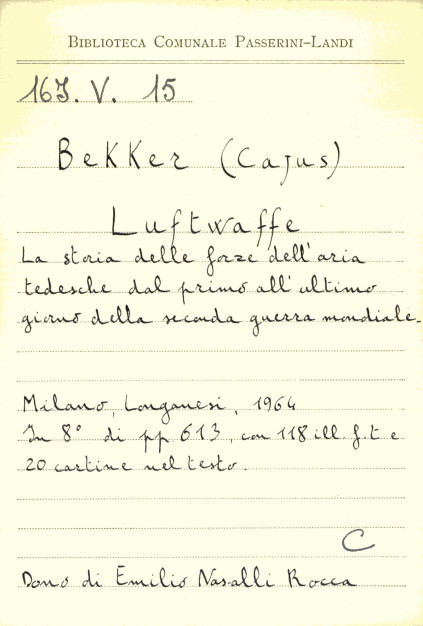 BIBLIOTECA COMUNALE PASSERINI-LANDI
16J. V. 15
BeKKer (Cajus)
Luftwaffe
La storia delle forze dell'aria
tedesche dal primo all'ultimo
giorno della seconda guerra mondiale.
Milano, Longanesi, 1964
In 8° di pp 613, con 118 ill. f. t e
20 cartine nel testo.
C
Dono di Emilio Nasalli Rocca